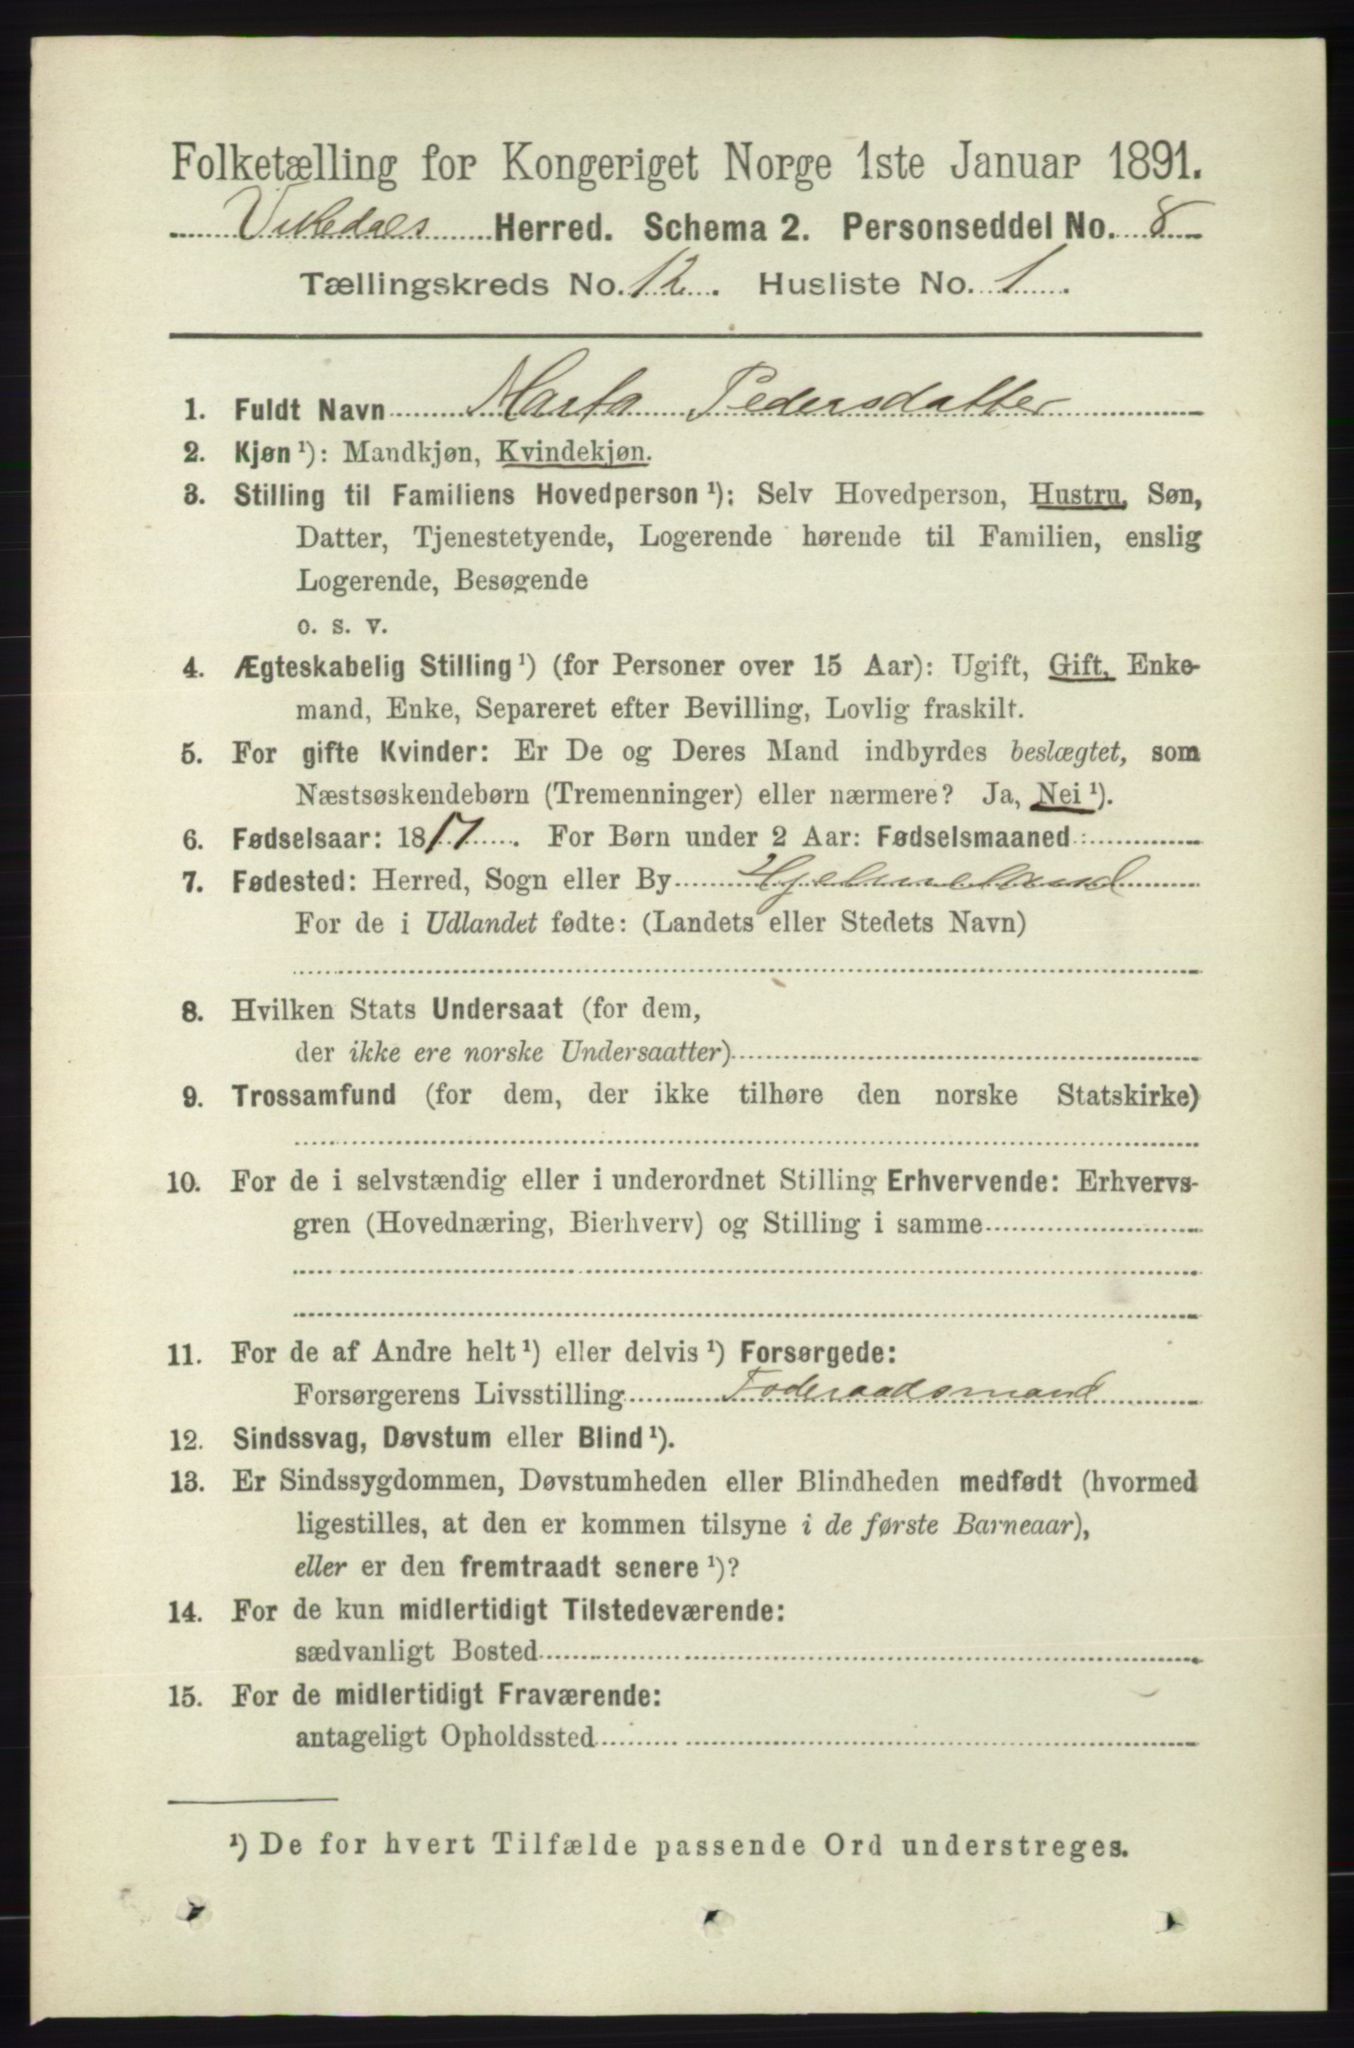 Folketælling for Kongeriget Norge 1ste Januar 1891.
Vikedals Herred. Schema 2. Personseddel No. 8
Tællingskreds No. 12. Husliste No. 1.
1. Fuldt Navn Marta Pedersdatter
2. Kjøn ¹): Mandkjøn, Kvindekjøn.
3. Stilling til Familiens Hovedperson ¹): Selv Hovedperson, Hustru, Søn,
Datter, Tjenestetyende, Logerende hørende til Familien, enslig
Logerende, Besøgende
o. s. v.
4. Ægteskabelig Stilling ¹) (for Personer over 15 Aar): Ugift, Gift, Enke-
mand, Enke, Separeret efter Bevilling, Lovlig fraskilt.
5. For gifte Kvinder: Er De og Deres Mand indbyrdes beslægtet, som
Næstsøskendebørn (Tremenninger) eller nærmere? Ja, Nei ¹).
6. Fødselsaar: 1817. For Børn under 2 Aar: Fødselsmaaned
7. Fødested: Herred, Sogn eller By Hjelmeland
For de i Udlandet fødte: (Landets eller Stedets Navn)
8. Hvilken Stats Undersaat (for dem,
der ikke ere norske Undersaatter)
9. Trossamfund (for dem, der ikke tilhøre den norske Statskirke)
10. For de i selvstændig eller i underordnet Stilling Erhvervende: Erhvervs-
gren (Hovednæring, Bierhverv) og Stilling i samme
11. For de af Andre helt ¹) eller delvis ¹) Forsørgede:
Forsørgerens Livsstilling Foderaadsmand
12. Sindssvag, Døvstum eller Blind ¹).
13. Er Sindssygdommen, Døvstumheden eller Blindheden medfødt (hvormed
ligestilles, at den er kommen tilsyne i de første Barneaar),
eller er den fremtraadt senere ¹)?
14. For de kun midlertidigt Tilstedeværende:
sædvanligt Bosted
15. For de midlertidigt Fraværende:
antageligt Opholdssted
¹) De for hvert Tilfælde passende Ord understreges.